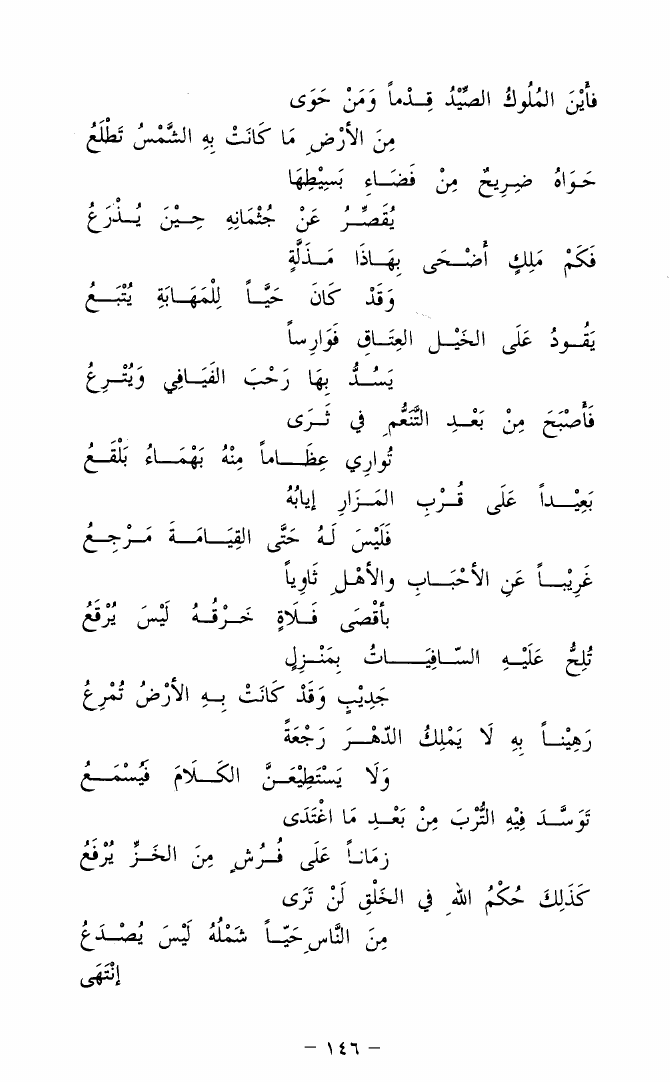 فَأَيْنَ المُلُوكُ الصِّيْدُ قِدْماً وَمَنْ حَوَى
مِنَ الأَرْضِ مَا كَانَتْ بِهِ الشَّمْسُ تَطْلَعُ
حَوَاهُ ضَرِيحٌ مِنْ فَضَاءِ بَسِيْطِهَا
يُقَصِّرُ عَنْ جُثْمَانِهِ حِيْنَ يُذْرَعُ
فَكَمْ مَلِكٍ أَضْحَى بِهَاذَا مَذَلَّةٍ
وَقَدْ كَانَ حَيَّاً لِلْمَهَابَةِ يُتْبَعُ
يَقُودُ عَلَى الخَيْلِ العِتَاقِ فَوَارِساً
يَسُدُّ بِهَا رَحْبَ الفَيَافِي وَيُتْرِعُ
فَأَصْبَحَ مِنْ بَعْدِ التَّنَعُّمِ فِي ثَرَى
تُوارِي عِظَاماً مِنْهُ بَهْمَاءُ بَلْقَعُ
بَعِيْداً عَلَى قُرْبِ المَزَارِ إِيَابُهُ
فَلَيْسَ لَهُ حَتَّى القِيَامَةَ مَرْجِعُ
غَرِيْباً عَنِ الأَحْبَابِ والأَهْلِ ثَاوِياً
بأَقْصَى فَلَاةٍ خَرْقُهُ لَيْسَ يُرْقَعُ
تُلِحُّ عَلَيْهِ السَّافِيَاتُ بِمَنْزِلٍ
جَدِيْبٍ وَقَدْ كَانَتْ بِهِ الأَرْضُ تُمْرِعُ
رَهِيْناً بِهِ لَا يَمْلِكُ الدَّهْرَ رَجْعَةً
وَلَا يَسْتَطِيْعَنَّ الكَلَامَ فَيُسْمَعُ
تَوَسَّدَ فِيْهِ التُّرْبَ مِنْ بَعْدِ مَا اغْتَدَى
زمَاناً عَلَى فُرُشٍ مِنَ الخَزِّ يُرْفَعُ
كَذَلِكَ حُكْمُ اللهِ في الخَلْقِ لَنْ تَرَى
مِنَ النَّاسِ حَيَّاً شَمْلُهُ لَيْسَ يُصْدَعُ
إنْتَهَى
– ١٤٦ –